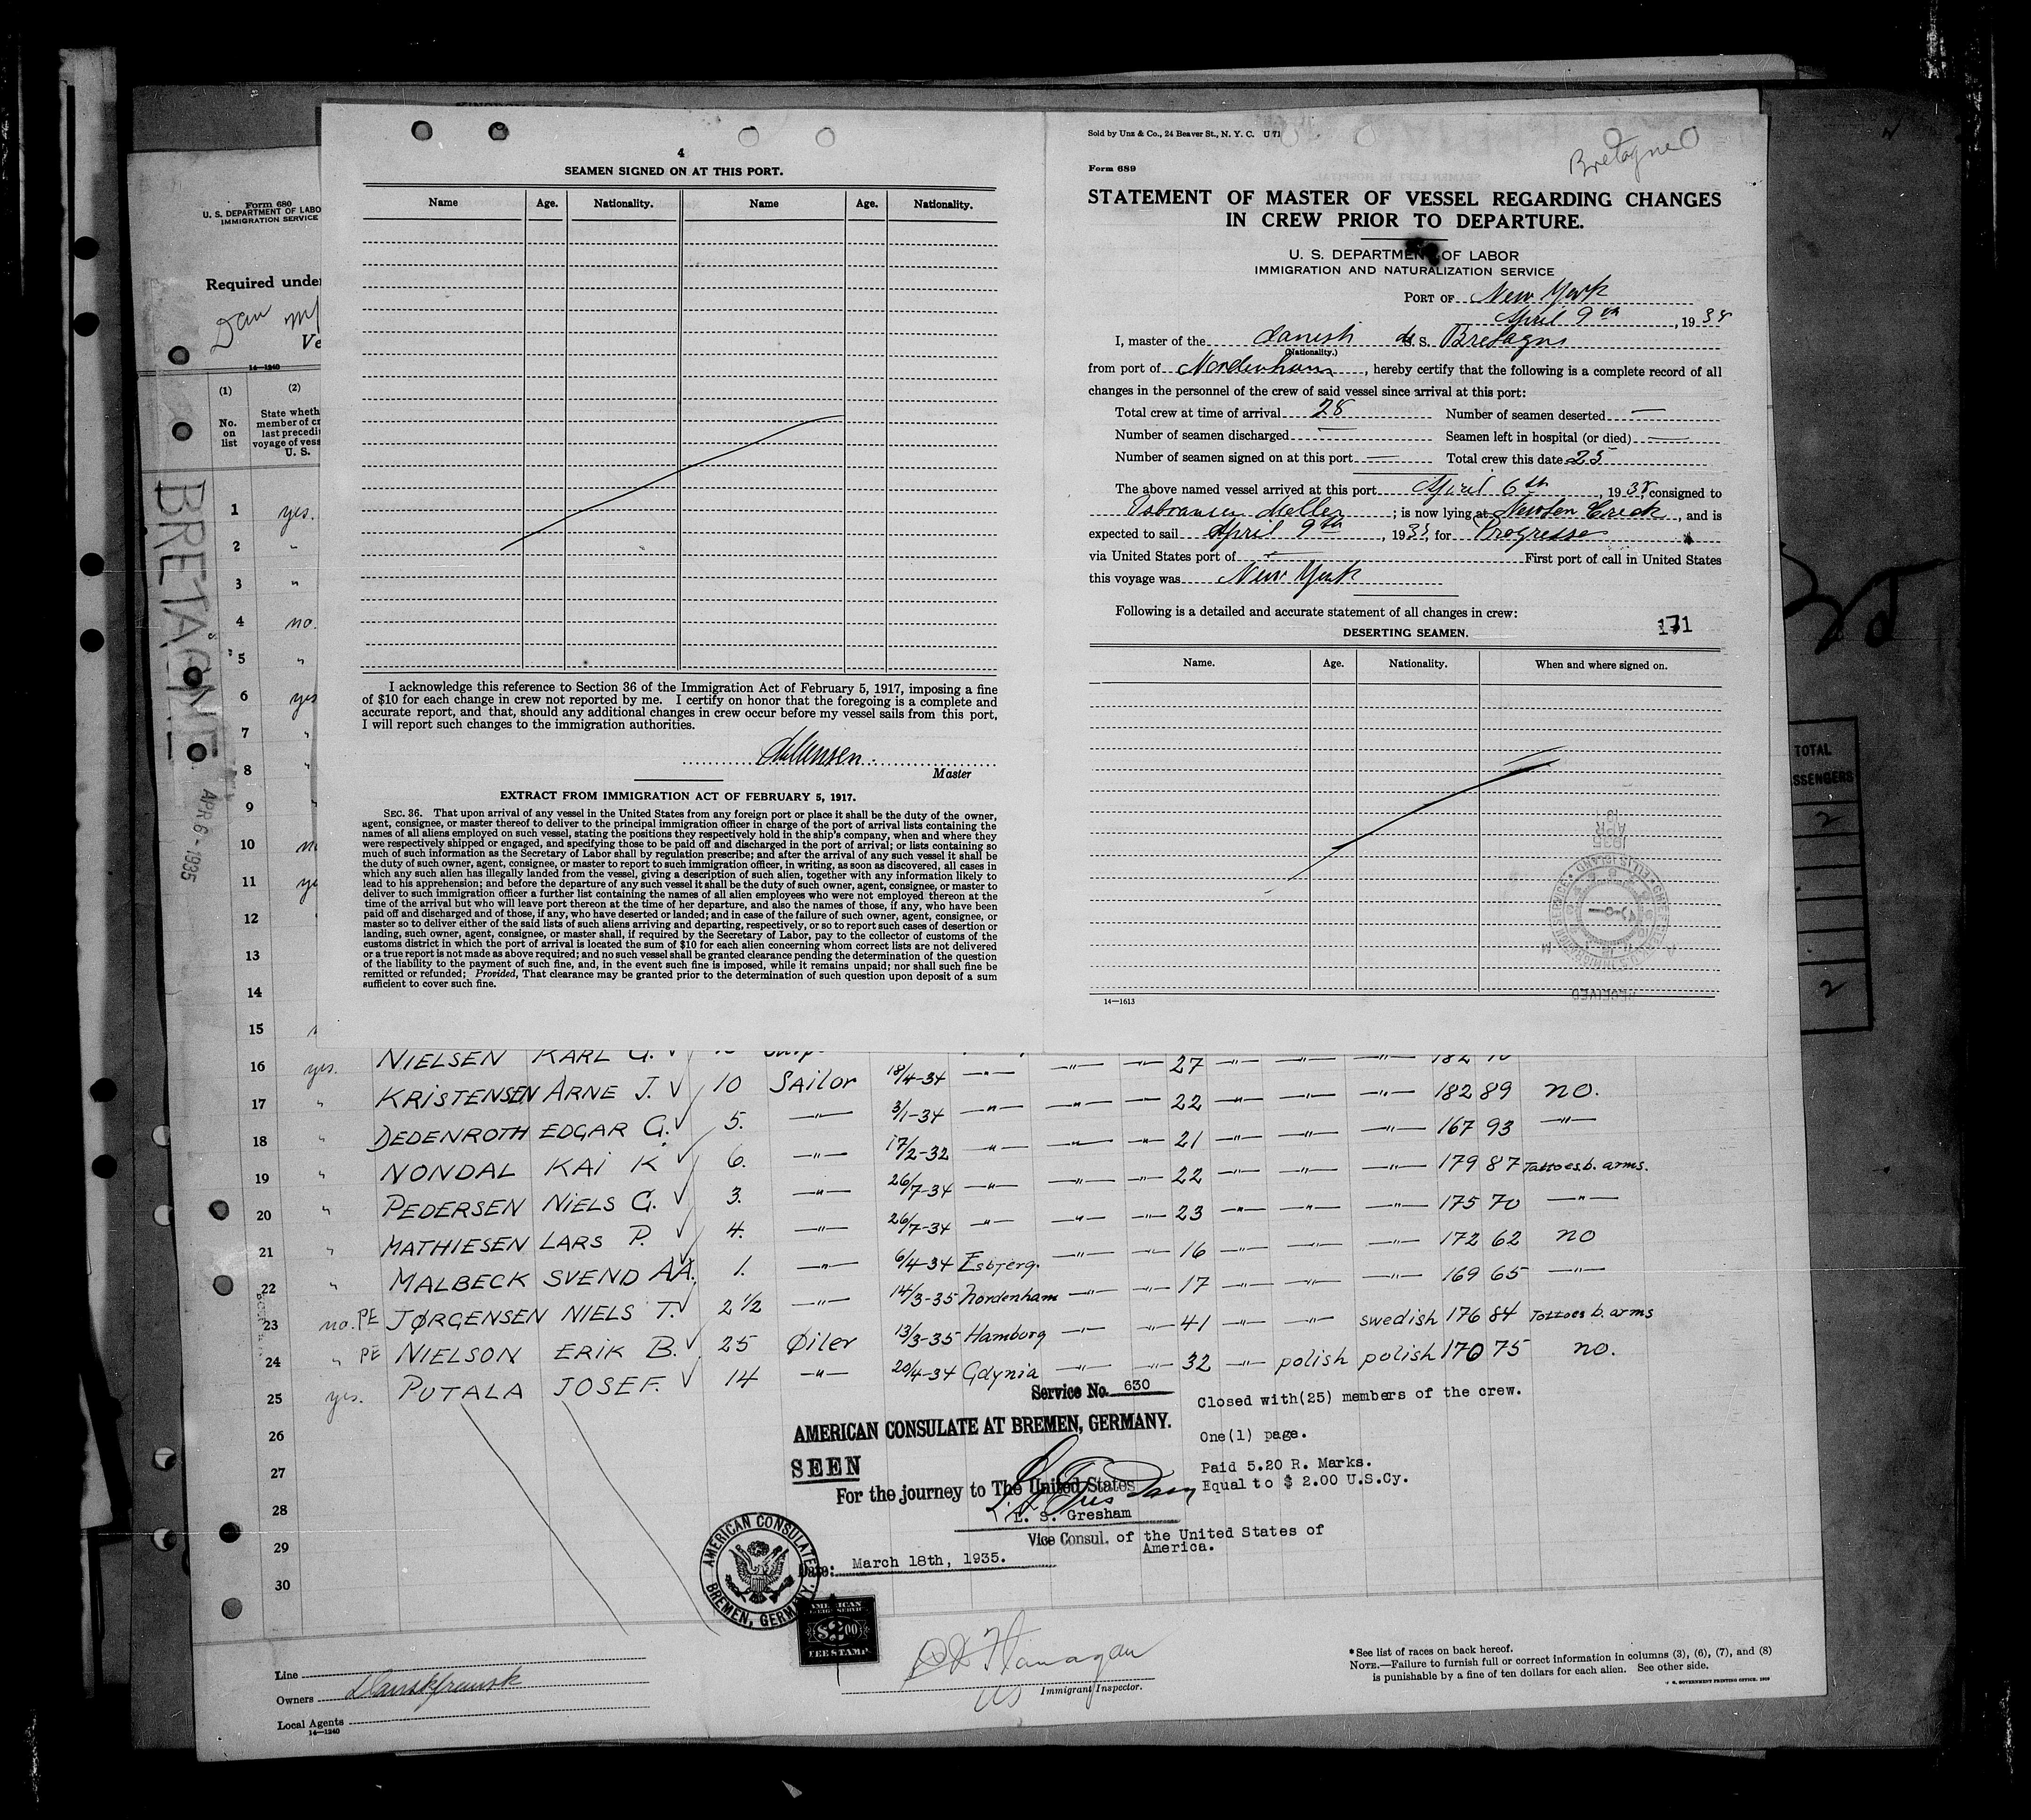 4
SEAMEN SIGNED ON AT THIS PORT.
Name Age. Nationality. Name Age. Nationality.
I acknowledge this reference to Section 36 of the Immigration Act of February 5, 1917, imposing a fine
of $10 for each change in crew not reported by me. I certify on honor that the foregoing is a complete and
accurate report, and that, should any additional changes in crew occur before my vessel sails from this port,
I will report such changes to the immigration authorities.
Master
EXTRACT FROM IMMIGRATION ACT OF FEBRUARY 5, 1917.
SEC. 36. That upon arrival of any vessel in the United States from any foreign port or place it shall be the duty of the owner,
agent, consignee, or master thereof to deliver to the principal immigration officer in charge of the port of arrival lists containing the
names of all aliens employed on such vessel, stating the positions they respectively hold in the ship's company, when and where they
were respectively shipped or engaged, and specifying those to be paid off and discharged in the port of arrival; or lists containing so
much of such information as the Secretary of Labor shall by regulation prescribe; and after the arrival of any such vessel it shall be
the duty of such owner, agent, consignee, or master to report to such immigration officer, in writing, as soon as discovered, all cases in
which any such alien has illegally landed from the vessel, giving a description of such alien, together with any information likely to
lead to his apprehension; and before the departure of any such vessel it shall be the duty of such owner, agent, consignee, or master to
deliver to such immigration officer a further list containing the names of all alien employees who were not employed thereon at the
time of the arrival but who will leave port thereon at the time of her departure, and also the names of those, if any, who have been
paid off and discharged and of those, if any, who have deserted or landed; and in case of the failure of such owner, agent, consignee, or
master so to deliver either of the said lists of such aliens arriving and departing, respectively, or so to report such cases of desertion or
landing, such owner, agent, consignee, or master shall, if required by the Secretary of Labor, pay to the collector of customs of the
customs district in which the port of arrival is located the sum of $10 for each alien concerning whom correct lists are not delivered
or a true report is not made as above required; and no such vessel shall be granted clearance pending the determination of the question
of the liability to the payment of such fine, and, in the event such fine is imposed, while it remains unpaid; nor shall such fine be
remitted or refunded; Provided, That clearance may be granted prior to the determination of such question upon deposit of a sum
sufficient to cover such fine.
Sold by Unz & Co., 24 Beaver St., N. Y. C. U 71
Bretagne
Form 689
STATEMENT OF MASTER OF VESSEL REGARDING CHANGES
IN CREW PRIOR TO DEPARTURE.
U. S. DEPARTMENT OF LABOR
IMMIGRATION AND NATURALIZATION SERVICE
PORT OF New York
April 9th, 1935
I, master of the danish S. S. Bretagne
(Nationality.)
from port of Nordenham, hereby certify that the following is a complete record of all
changes in the personnel of the crew of said vessel since arrival at this port:
Total crew at time of arrival 25 Number of seamen deserted —
Number of seamen discharged — Seamen left in hospital (or died) —
Number of seamen signed on at this port — Total crew this date 25
The above named vessel arrived at this port April 6th, 1935, consigned to
; is now lying at Newton Creek, and is
expected to sail April 9th, 1935, for Progresso
via United States port of — First port of call in United States
this voyage was New York
Following is a detailed and accurate statement of all changes in crew:
DESERTING SEAMEN. 171
Name. Age. Nationality. When and where signed on.
APR 1935
RECEIVED
14—1613
Form 680
U. S. DEPARTMENT OF LABO
IMMIGRATION SERVICE
Required unde
Dan
Ve
14—1240
(1) (2)
No. on list
State wheth
member of cr
last precedi
voyage of vess
U. S.
BRETAGNE
APR 6 - 1935
1 yes.
2 "
3 "
4 no.
5 "
6 yes
7 "
8 "
9 "
10 no
11 ye
12
13
14
15
16 yes. NIELSEN KARL G. 27 182
17 " KRISTENSEN ARNE J. 10 Sailor 18/4-34 —"— —"— —"— 22 —"— —"— —"— 182 89 no.
18 " DEDENROTH EDGAR G. 5. —"— 3/1-34 —"— —"— —"— 21 —"— —"— —"— 167 93 —"—
19 " NONDAL KAI K 6. —"— 17/2-32 —"— —"— —"— 22 —"— —"— —"— 179 87 Tattoes b. arms.
20 " PEDERSEN NIELS G. 3. —"— 26/7-34 —"— —"— —"— 23 —"— —"— —"— 175 70 —"—
21 " MATHIESEN LARS P. 4. —"— 26/7-34 —"— —"— —"— 16 —"— —"— —"— 172 62 no
22 " MALBECK SVEND AA. 1. —"— 6/4-34 Esbjerg. —"— —"— 17 —"— —"— —"— 169 65 —"—
23 no. PE JØRGENSEN NIELS T. 2 1/2 —"— 14/3-35 Nordenham —"— —"— 41 —"— —"— swedish 176 84 Tattoes b. arms
24 " PE NIELSON ERIK B. 25 Øiler 13/3-35 Hamburg —"— —"— 32 —"— polish polish 170 75 no.
25 yes. PUTALA JOSEF. 14 —"— 20/4-34 Gdynia
26
27
28
29
30
Service No. 630
AMERICAN CONSULATE AT BREMEN, GERMANY.
SEEN
For the journey to The United States
L. S. Gresham
Vice Consul. of the United States of
America.
Date: March 18th, 1935.
Closed with(25) members of the crew.
One(1) page.
Paid 5.20 R. Marks.
Equal to $ 2.00 U.S.Cy.
AMERICAN CONSULATE
BREMEN, GERMANY.
AMERICAN
$2.00
FEE STAMP
Line
Owners Danskfransk
Local Agents
14—1240
Flanagan
Immigrant Inspector.
* See list of races on back hereof.
NOTE.—Failure to furnish full or correct information in columns (3), (6), (7), and (8)
is punishable by a fine of ten dollars for each alien. See other side.
U. S. GOVERNMENT PRINTING OFFICE.
TOTAL
SSENGERS
2
2